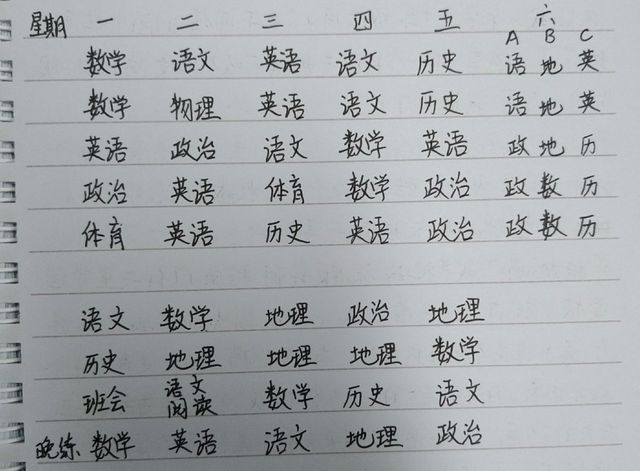 星期 一 二 三 四 五 六
A B C
数学 语文 英语 语文 历史 语 地 英
数学 物理 英语 语文 历史 语 地 英
英语 政治 语文 数学 英语 政 地 历
政治 英语 体育 数学 政治 政 数 历
体育 英语 历史 英语 政治 政 数 历
语文 数学 地理 政治 地理
历史 地理 地理 地理 数学
班会 语文阅读 数学 历史 语文
晚练 数学 英语 语文 地理 政治